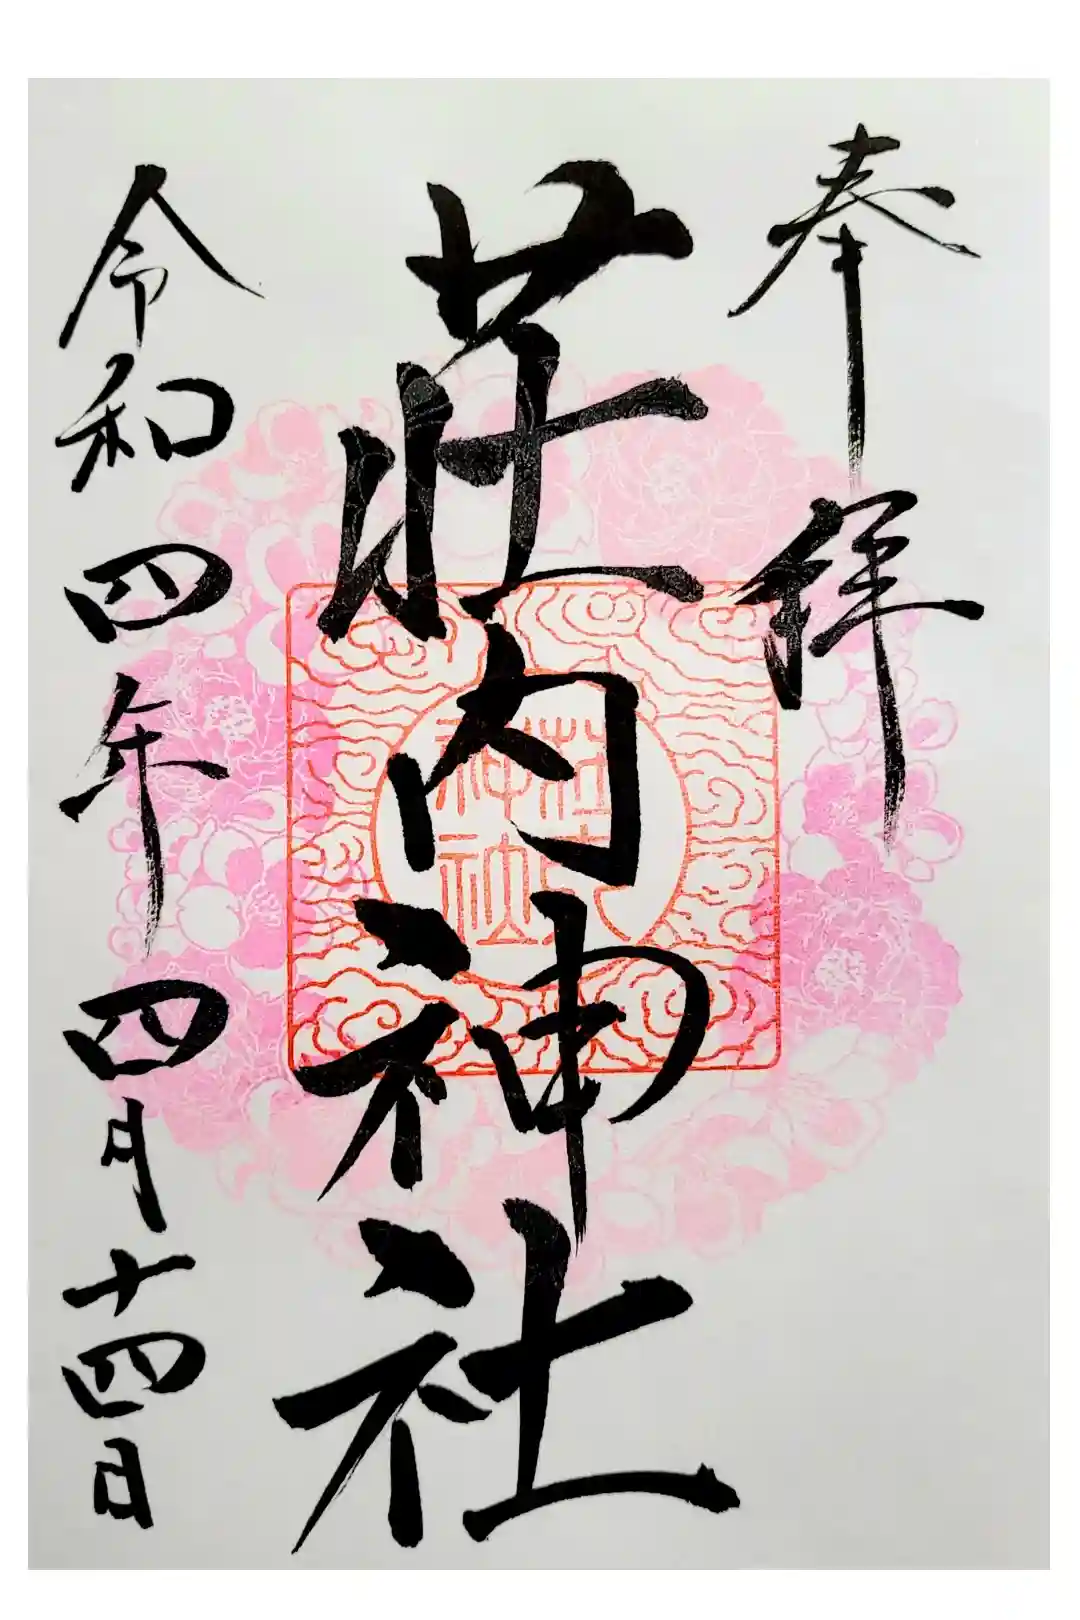 奉拝
荘内神社
荘内
神社
令和四年四月十四日